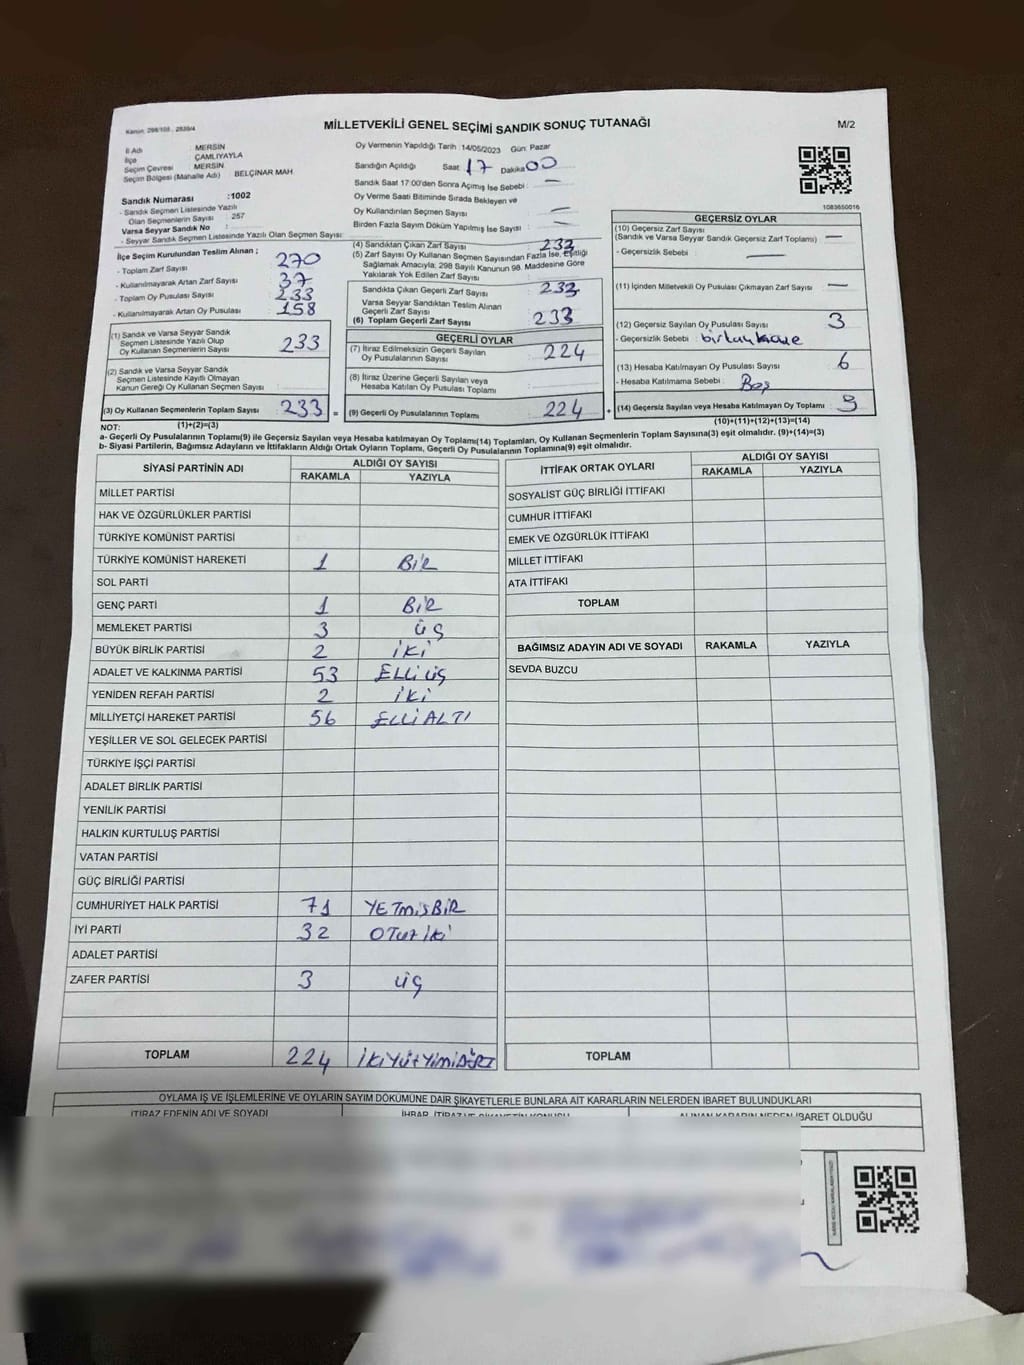 Kanun: 298/105 , 2839/4
MİLLETVEKİLİ GENEL SEÇİMİ SANDIK SONUÇ TUTANAĞI
M/2
İl Adı : MERSİN
İlçe : ÇAMLIYAYLA
Seçim Çevresi : MERSİN
Seçim Bölgesi (Mahalle Adı) : BELÇINAR MAH.
Sandık Numarası :1002
- Sandık Seçmen Listesinde Yazılı
Olan Seçmenlerin Sayısı : 257
Varsa Seyyar Sandık No :
- Seyyar Sandık Seçmen Listesinde Yazılı Olan Seçmen Sayısı:
İlçe Seçim Kurulundan Teslim Alınan ;
- Toplam Zarf Sayısı : 270
- Kullanılmayarak Artan Zarf Sayısı : 37
- Toplam Oy Pusulası Sayısı : 233
- Kullanılmayarak Artan Oy Pusulası : 158
(1) Sandık ve Varsa Seyyar Sandık
Seçmen Listesinde Yazılı Olup
Oy Kullanan Seçmenlerin Sayısı : 233
(2) Sandık ve Varsa Seyyar Sandık
Seçmen Listesinde Kayıtlı Olmayan
Kanun Gereği Oy Kullanan Seçmen Sayısı :
(3) Oy Kullanan Seçmenlerin Toplam Sayısı : 233 =
(1)+(2)=(3)
Oy Vermenin Yapıldığı Tarih :14/05/2023 Gün: Pazar
Sandığın Açıldığı Saat: 17 Dakika: 00
Sandık Saat 17:00'den Sonra Açımış İse Sebebi : —
Oy Verme Saati Bitiminde Sırada Bekleyen ve
Oy Kullandırılan Seçmen Sayısı : —
Birden Fazla Sayım Döküm Yapılmış İse Sayısı : —
(4) Sandıktan Çıkan Zarf Sayısı : 233
(5) Zarf Sayısı Oy Kullanan Seçmen Sayısından Fazla İse, Eşitliği
Sağlamak Amacıyla, 298 Sayılı Kanunun 98. Maddesine Göre
Yakılarak Yok Edilen Zarf Sayısı :
Sandıkta Çıkan Geçerli Zarf Sayısı : 233
Varsa Seyyar Sandıktan Teslim Alınan
Geçerli Zarf Sayısı :
(6) Toplam Geçerli Zarf Sayısı : 233
GEÇERLİ OYLAR
(7) İtiraz Edilmeksizin Geçerli Sayılan
Oy Pusulalarının Sayısı : 224
(8) İtiraz Üzerine Geçerli Sayılan veya
Hesaba Katılan Oy Pusulası Toplamı :
(9) Geçerli Oy Pusulalarının Toplamı : 224 +
1083650016
GEÇERSİZ OYLAR
(10) Geçersiz Zarf Sayısı
(Sandık ve Varsa Seyyar Sandık Geçersiz Zarf Toplamı) : —
- Geçersizlik Sebebi : —
(11) İçinden Milletvekili Oy Pusulası Çıkmayan Zarf Sayısı : —
(12) Geçersiz Sayılan Oy Pusulası Sayısı : 3
- Geçersizlik Sebebi :
(13) Hesaba Katılmayan Oy Pusulası Sayısı : 6
- Hesaba Katılmama Sebebi : Boş
(14) Geçersiz Sayılan veya Hesaba Katılmayan Oy Toplamı : 9
(10)+(11)+(12)+(13)=(14)
NOT:
a- Geçerli Oy Pusulalarının Toplamı(9) ile Geçersiz Sayılan veya Hesaba katılmayan Oy Toplamı(14) Toplamları, Oy Kullanan Seçmenlerin Toplam Sayısına(3) eşit olmalıdır. (9)+(14)=(3)
b- Siyasi Partilerin, Bağımsız Adayların ve İttifakların Aldığı Ortak Oyların Toplamı, Geçerli Oy Pusulalarının Toplamına(9) eşit olmalıdır.
SİYASİ PARTİNİN ADI ALDIĞI OY SAYISI
RAKAMLA YAZIYLA
MİLLET PARTİSİ
HAK VE ÖZGÜRLÜKLER PARTİSİ
TÜRKİYE KOMÜNİST PARTİSİ
TÜRKİYE KOMÜNİST HAREKETİ 1 BİR
SOL PARTİ
GENÇ PARTİ 1 BİR
MEMLEKET PARTİSİ 3 ÜÇ
BÜYÜK BİRLİK PARTİSİ 2 İKİ
ADALET VE KALKINMA PARTİSİ 53 ELLİ ÜÇ
YENİDEN REFAH PARTİSİ 2 İKİ
MİLLİYETÇİ HAREKET PARTİSİ 56 ELLİ ALTI
YEŞİLLER VE SOL GELECEK PARTİSİ
TÜRKİYE İŞÇİ PARTİSİ
ADALET BİRLİK PARTİSİ
YENİLİK PARTİSİ
HALKIN KURTULUŞ PARTİSİ
VATAN PARTİSİ
GÜÇ BİRLİĞİ PARTİSİ
CUMHURİYET HALK PARTİSİ 71 YETMİŞBİR
İYİ PARTİ 32 OTUZ İKİ
ADALET PARTİSİ
ZAFER PARTİSİ 3 ÜÇ
TOPLAM 224
İTTİFAK ORTAK OYLARI ALDIĞI OY SAYISI
RAKAMLA YAZIYLA
SOSYALİST GÜÇ BİRLİĞİ İTTİFAKI
CUMHUR İTTİFAKI
EMEK VE ÖZGÜRLÜK İTTİFAKI
MİLLET İTTİFAKI
ATA İTTİFAKI
TOPLAM
BAĞIMSIZ ADAYIN ADI VE SOYADI RAKAMLA YAZIYLA
SEVDA BUZCU
TOPLAM
OYLAMA İŞ VE İŞLEMLERİNE VE OYLARIN SAYIM DÖKÜMÜNE DAİR ŞİKAYETLERLE BUNLARA AİT KARARLARIN NELERDEN İBARET BULUNDUKLARI
İTİRAZ EDENİN ADI VE SOYADI İHBAR, İTİRAZ VE ŞİKAYETİN KONUSU ALINAN KARARIN NEDEN İBARET OLDUĞU